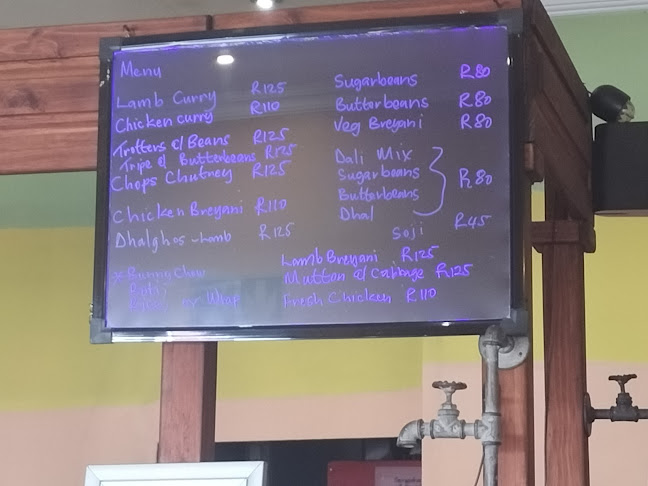 Menu
Lamb Curry R125
Chicken curry R110
Trotters & Beans R125
Tripe & Butterbeans R125
Chops Chutney R125
Chicken Breyani R110
Dhalghos - Lamb R125
x Bunny Chow
Roti
or Wrap
Sugarbeans R80
Butterbeans R80
Veg Breyani R80
Dali Mix
Sugarbeans
Butterbeans R80
Dhal
Soji R45
Lamb Breyani R125
Mutton & Cabbage R125
Fresh Chicken R110